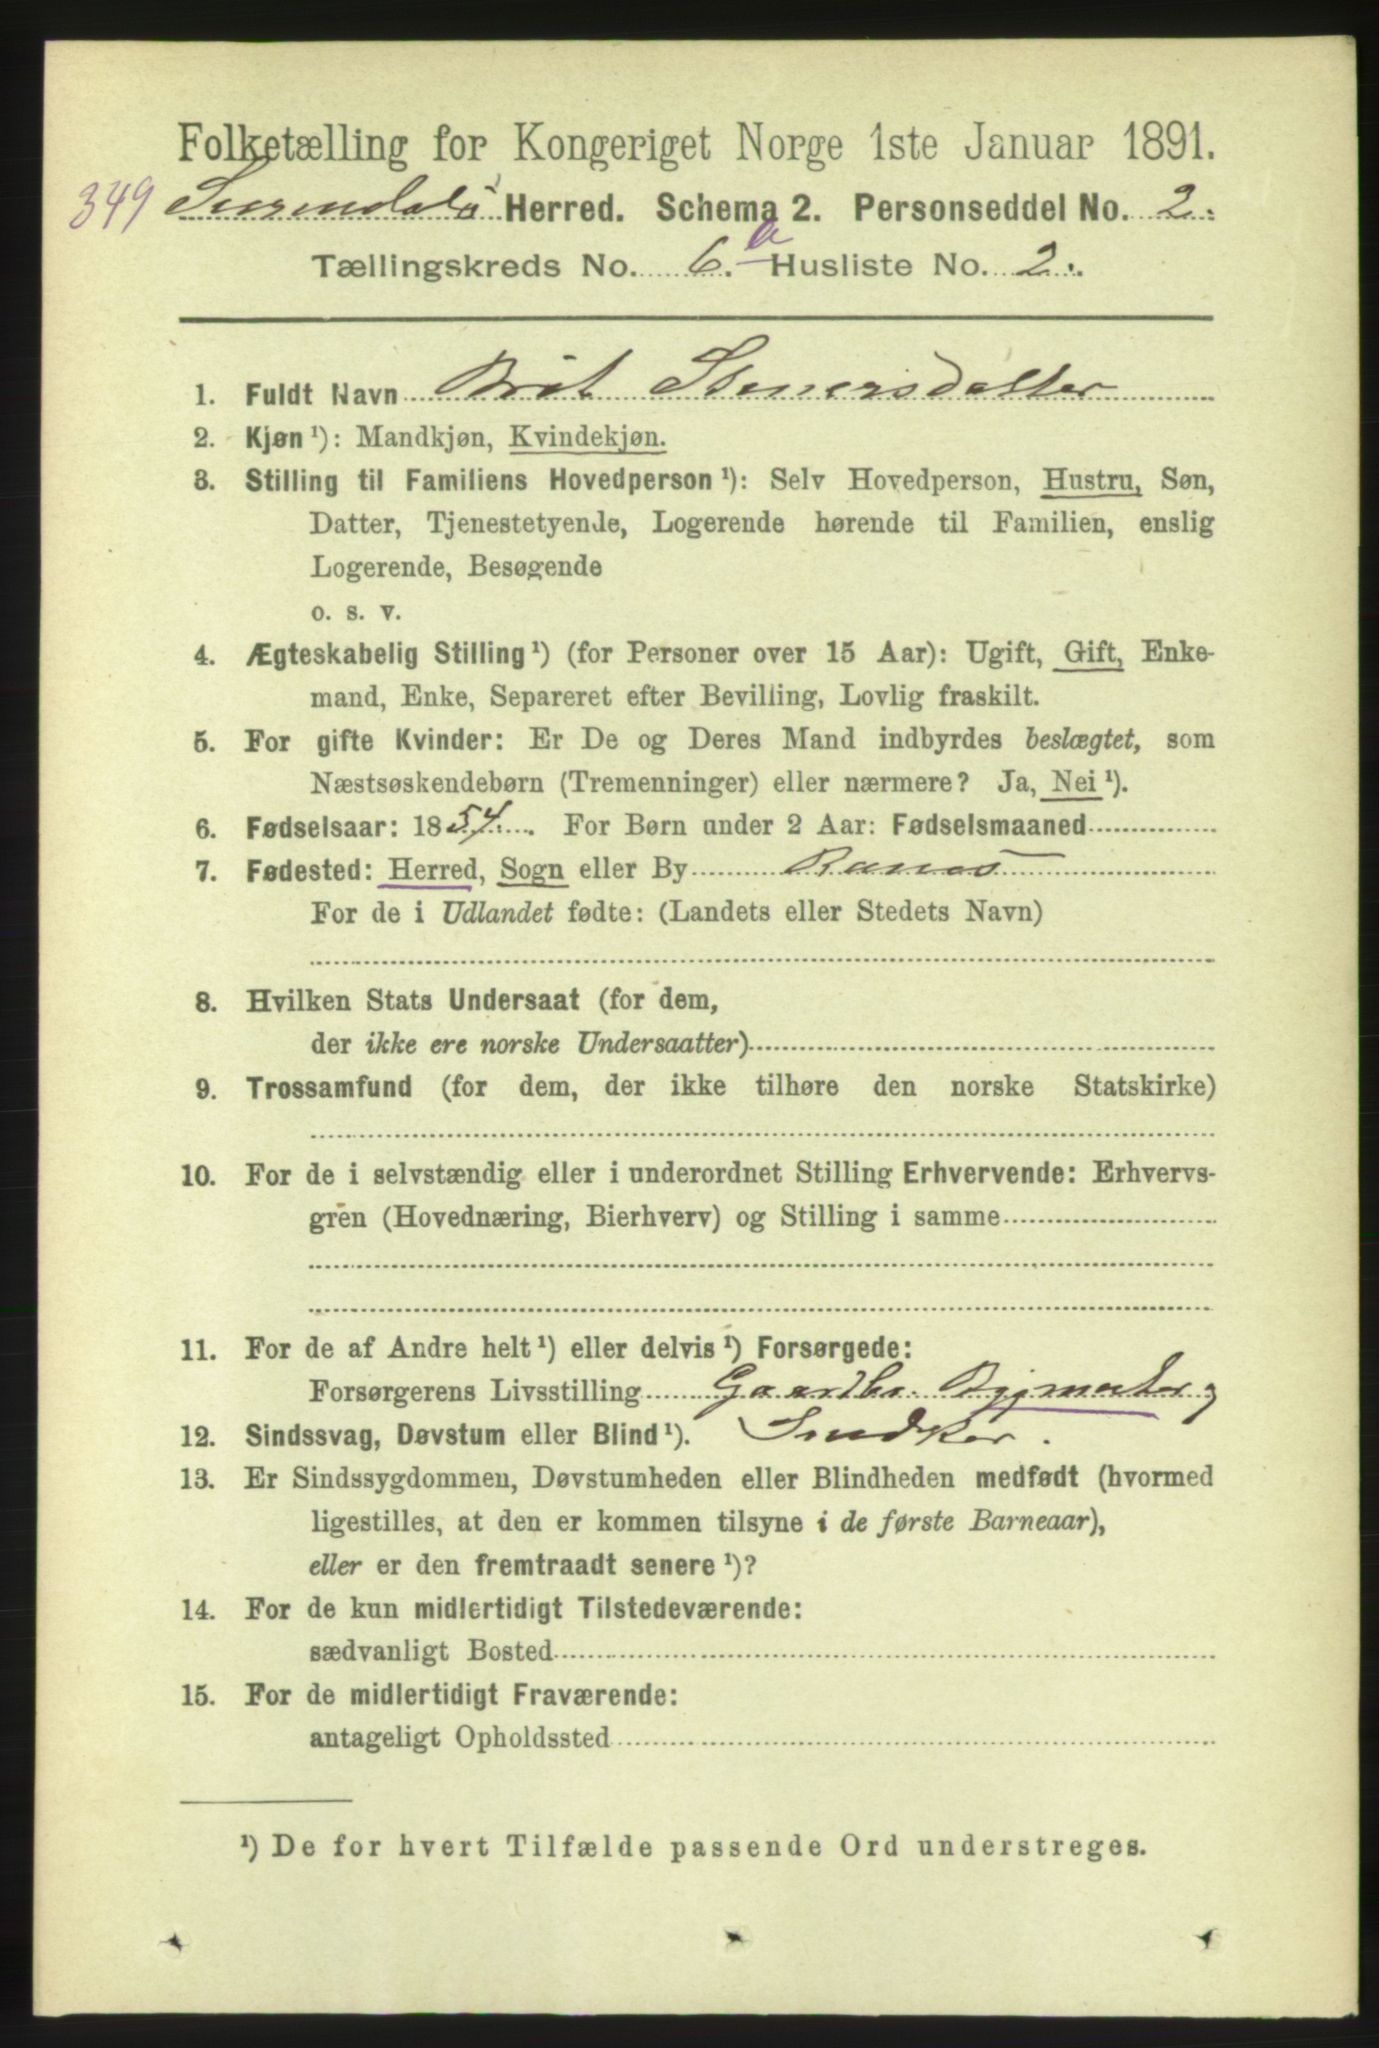 Folketælling for Kongeriget Norge 1ste Januar 1891.
349 Surendals Herred. Schema 2. Personseddel No. 2.
Tællingskreds No. 6. a Husliste No. 2.
1. Fuldt Navn Brit Stenersdatter
2. Kjøn ¹): Mandkjøn, Kvindekjøn.
3. Stilling til Familiens Hovedperson ¹): Selv Hovedperson, Hustru, Søn,
Datter, Tjenestetyende, Logerende hørende til Familien, enslig
Logerende, Besøgende
o. s. v.
4. Ægteskabelig Stilling ¹) (for Personer over 15 Aar): Ugift, Gift, Enke-
mand, Enke, Separeret efter Bevilling, Lovlig fraskilt.
5. For gifte Kvinder: Er De og Deres Mand indbyrdes beslægtet, som
Næstsøskendebørn (Tremenninger) eller nærmere? Ja, Nei ¹).
6. Fødselsaar: 1854. For Børn under 2 Aar: Fødselsmaaned
7. Fødested: Herred, Sogn eller By Ranes
For de i Udlandet fødte: (Landets eller Stedets Navn)
8. Hvilken Stats Undersaat (for dem,
der ikke ere norske Undersaatter)
9. Trossamfund (for dem, der ikke tilhøre den norske Statskirke)
10. For de i selvstændig eller i underordnet Stilling Erhvervende: Erhvervs-
gren (Hovednæring, Bierhverv) og Stilling i samme
11. For de af Andre helt ¹) eller delvis ¹) Forsørgede:
Forsørgerens Livsstilling Gaardbr. Bygmester
12. Sindssvag, Døvstum eller Blind ¹). Snedker.
13. Er Sindssygdommen, Døvstumheden eller Blindheden medfødt (hvormed
ligestilles, at den er kommen tilsyne i de første Barneaar),
eller er den fremtraadt senere ¹)?
14. For de kun midlertidigt Tilstedeværende:
sædvanligt Bosted
15. For de midlertidigt Fraværende:
antageligt Opholdssted
¹) De for hvert Tilfælde passende Ord understreges.